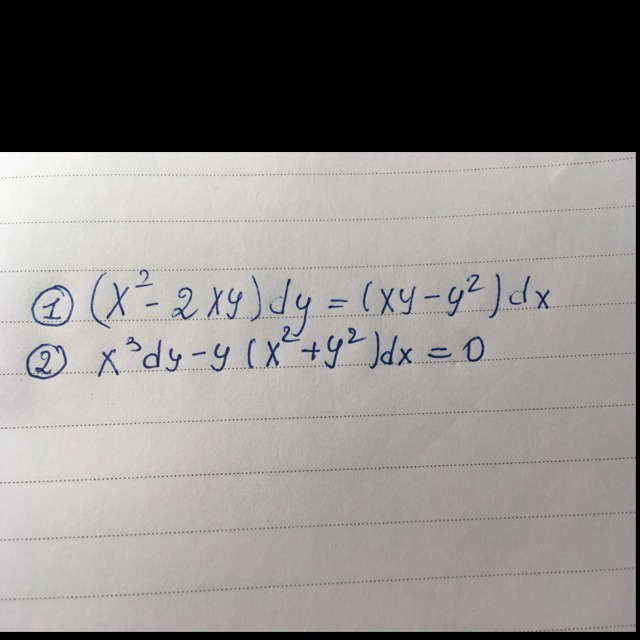 ① (x² - 2xy) dy = (xy - y²) dx
② x³dy - y (x² + y²)dx = 0